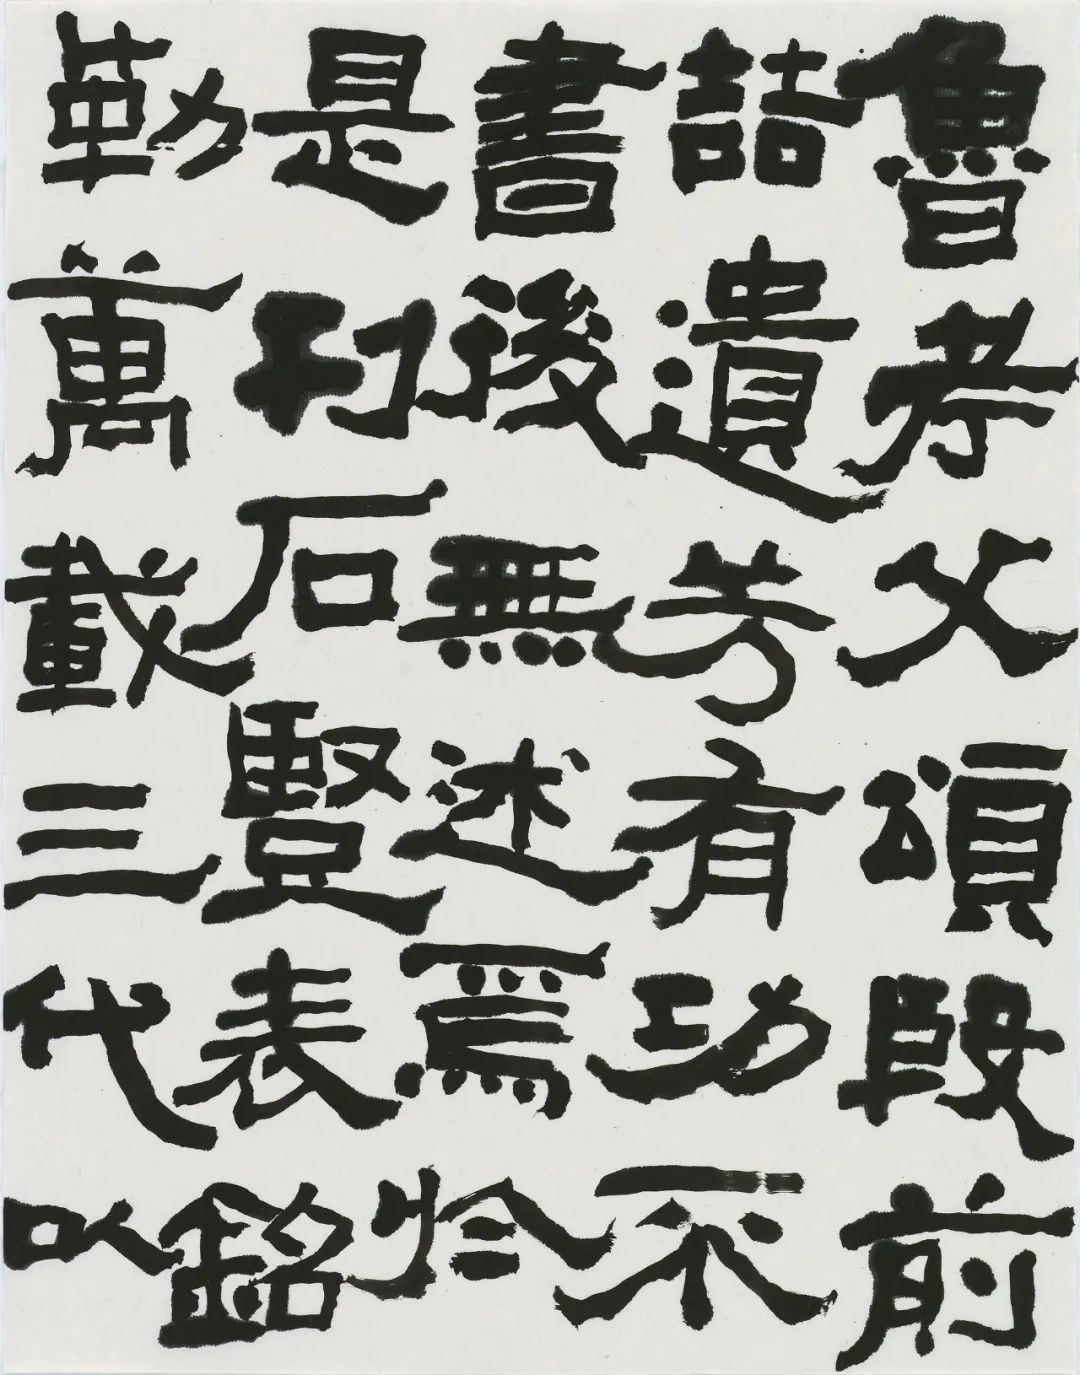 魯考父頌殷前
喆遺芳有功不
書後無述焉於
是刊石豎表銘
勒萬載三代以